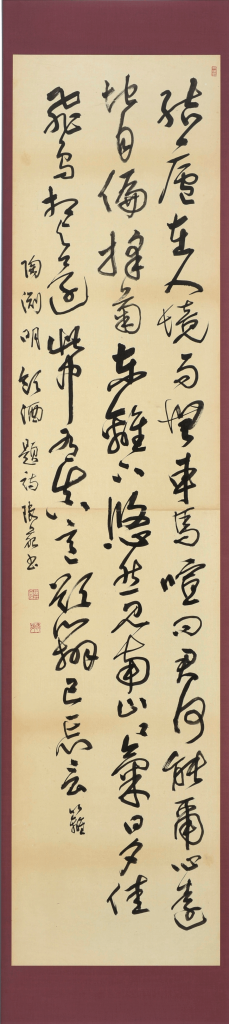 結廬在人境而無車馬喧問君何能爾心遠
地自偏採菊東離下悠然見南山々氣日夕佳
飛鳥相與還此中有真意欲辨已忘言 籬
陶渊明飲酒題詩 張 書